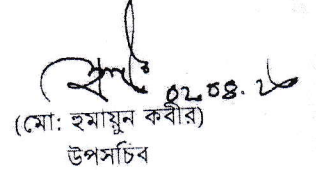 ০২.০৪.২৬
(মো: হুমায়ুন কবীর)
উপসচিব